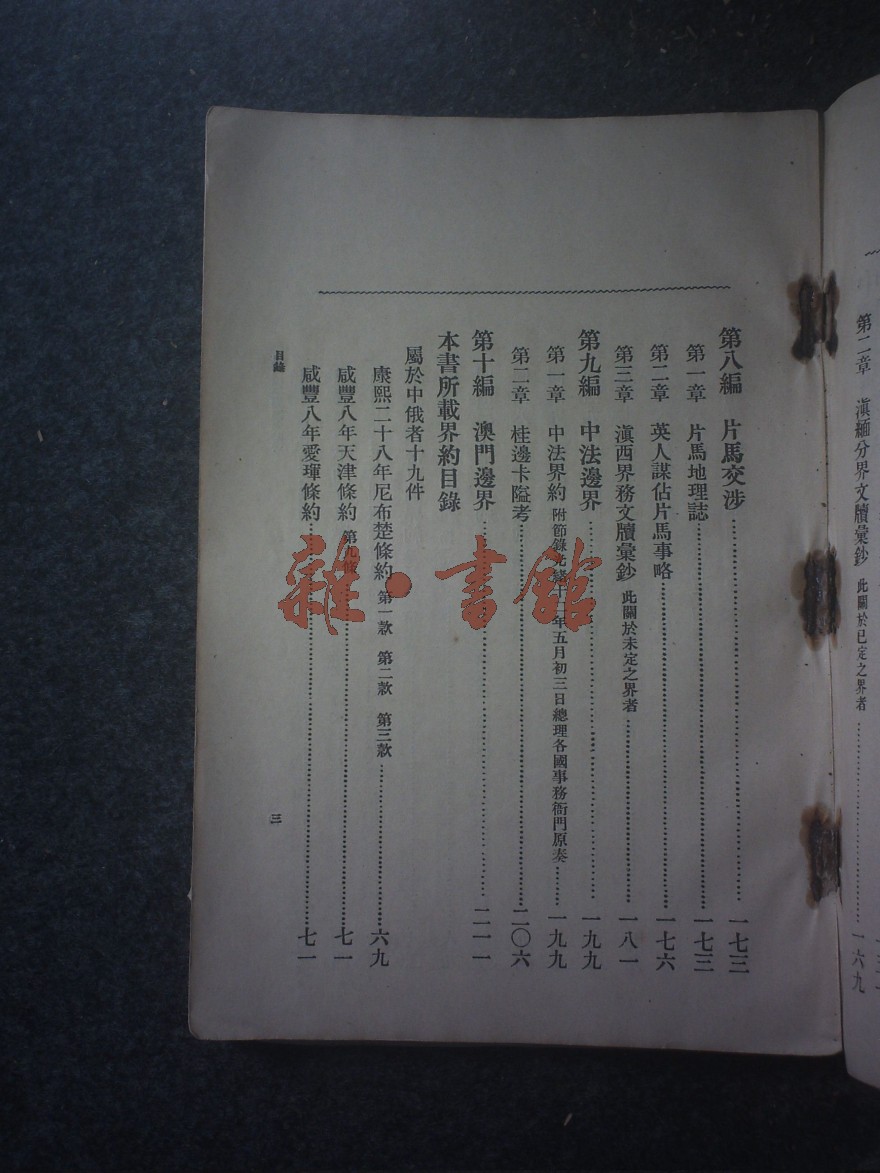 第二章 滇緬分界文牘彙鈔 此關於已定之界者 一六九
第八編 片馬交涉 一七三
第一章 片馬地理誌 一七三
第二章 英人謀佔片馬事略 一七六
第三章 滇西界務文牘彙鈔 此關於未定之界者 一八一
第九編 中法邊界 一九九
第一章 中法界約 附節錄光緒十一年五月初三日總理各國事務衙門原奏 一九九
第二章 桂邊卡隘考 二〇六
第十編 澳門邊界 二一一
本書所載界約目錄
屬於中俄者十九件
康熙二十八年尼布楚條約 第一款 第二款 第三款 六九
咸豐八年天津條約 第九條 七一
咸豐八年愛琿條約 七一
目錄
三
雜·書館